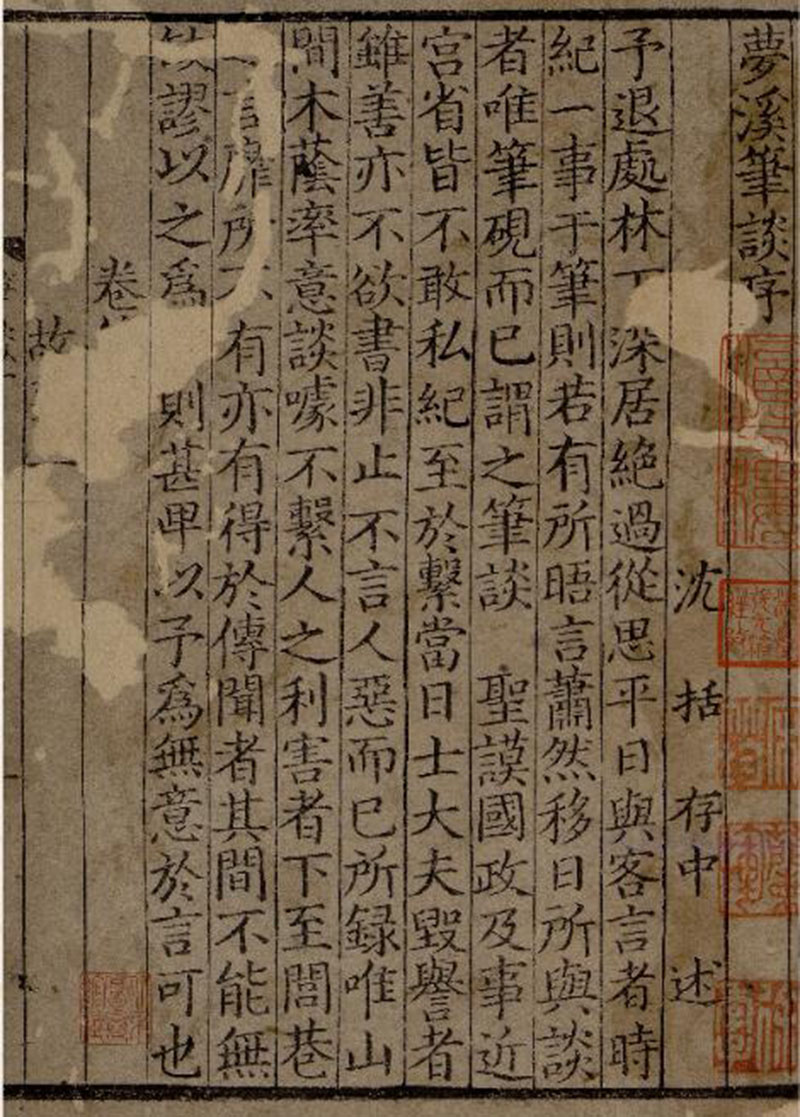 夢溪筆談序
沈括存中述
予退處林下深居絶過從思平日與客言者時
紀一事于筆則若有所晤言蕭然移日所與談
者唯筆硯而已謂之筆談　聖謨國政及事近
宮省皆不敢私紀至於繫當日士大夫毀譽者
雖善亦不欲書非止不言人惡而已所録唯山
間木蔭率意談噱不繫人之利害者下至閭巷
言靡所不有亦有得於傳聞者其間不能無
謬以之爲則甚卑以予爲無意於言可也
卷
故一